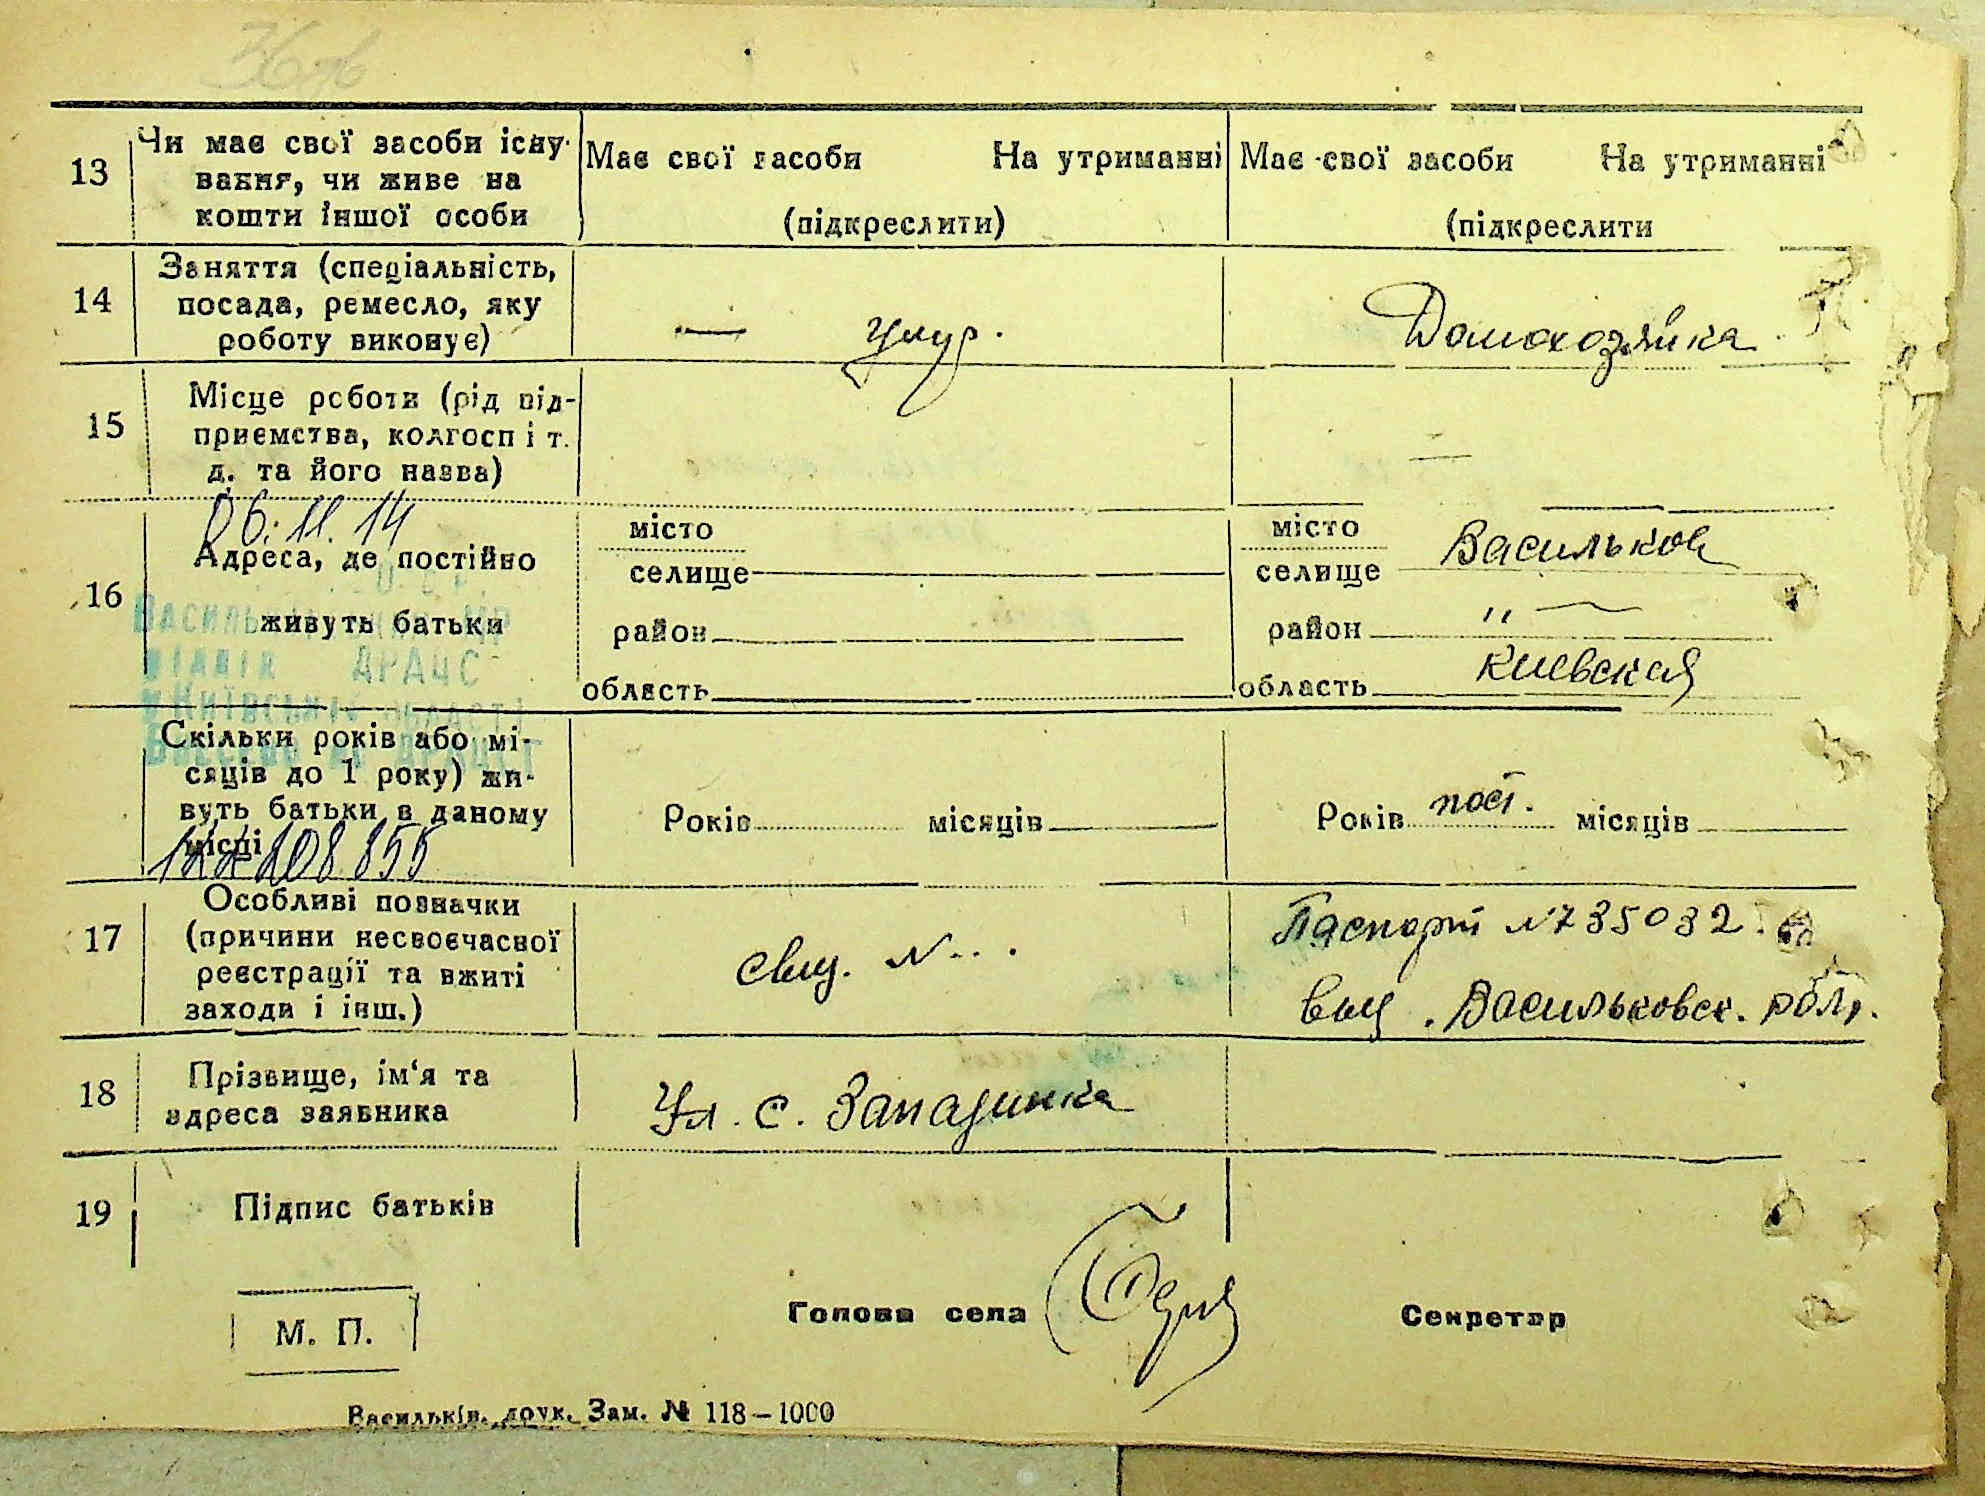 13
Чи має свої засоби існу-
вання, чи живе на
кошти іншої особи
Має свої засоби На утриманні
(підкреслити)
Має свої засоби На утриманні
(підкреслити
14
Заняття (спеціальність,
посада, ремесло, яку
роботу виконує)
—
Домохозяйка
15
Місце роботи (рід під-
приємства, колгосп і т.
д. та його назва)
—
06.11.14
16
Адреса, де постійно
живуть батьки
місто
селище
район
область
місто
селище
Васильков
район
" —
область Киевская
ДРАЦС
Скільки років або мі-
сяців до 1 року) жи-
вуть батьки в даному
місці
108855
Років місяців
Років пост. місяців
17
Особливі позначки
(причини несвоєчасної
реєстрації та вжиті
заходи і інш.)
свид. N...
Паспорт N 735032.
выд. Васильковск.
18
Прізвище, ім'я та
адреса заявника
Ул. с. Западинка
19
Підпис батьків
М. П.
Голова села
Секретар
Васильків. друк. Зам. № 118–1000